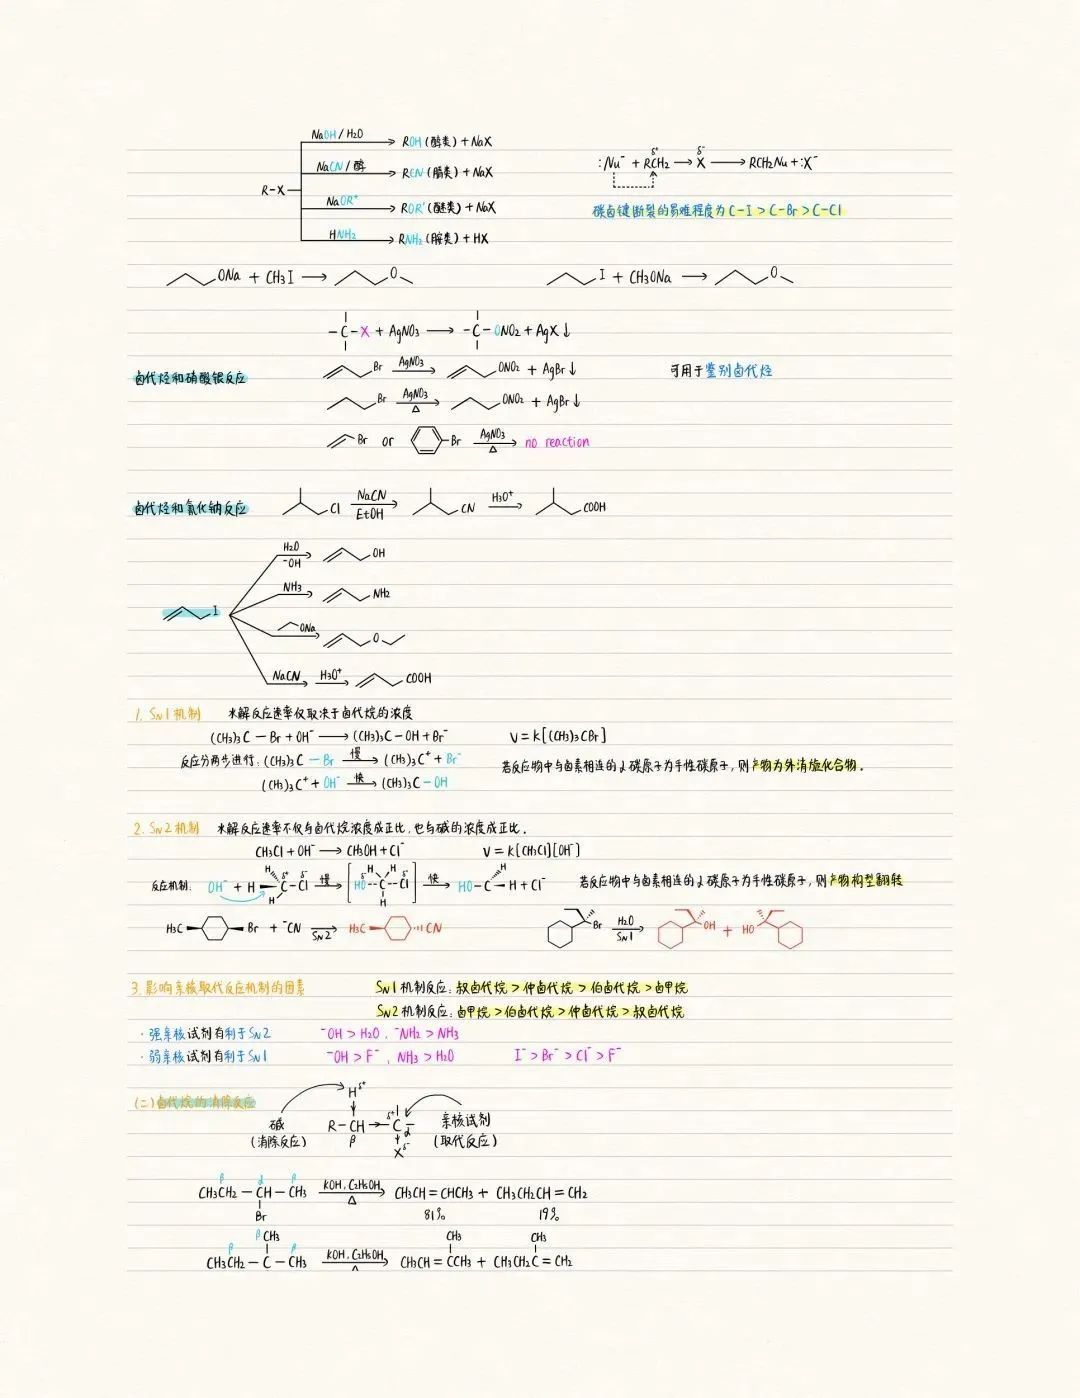 NaOH / H2O
ROH (醇类) + NaX
NaCN / 醇
RCN (腈类) + NaX
R-X
NaOR'
ROR' (醚类) + NaX
HNH2
RNH2 (胺类) + HX
:Nu⁻ + RCH2 → X → RCH2Nu + :X⁻
δ⁺ δ⁻
碳卤键断裂的易难程度为 C-I > C-Br > C-Cl
ONa + CH3I → O
I + CH3ONa → O
-C-X + AgNO3 → -C-ONO2 + AgX↓
卤代烃和硝酸银反应
Br AgNO3 → ONO2 + AgBr↓
可用于鉴别卤代烃
Br AgNO3 △ → ONO2 + AgBr↓
Br or Br AgNO3 △ → no reaction
卤代烃和氰化钠反应
Cl NaCN EtOH → CN H3O⁺ → COOH
H2O ⁻OH OH
NH3 NH2
I
ONa O
NaCN H3O⁺ COOH
1. SN1机制 水解反应速率仅取决于卤代烷的浓度
(CH3)3C - Br + OH⁻ → (CH3)3C - OH + Br⁻ V = K[(CH3)3CBr]
反应分两步进行: (CH3)3C - Br 慢 → (CH3)3C⁺ + Br⁻
若反应物中与卤素相连的α碳原子为手性碳原子, 则产物为外消旋化合物.
(CH3)3C⁺ + OH⁻ 快 → (CH3)3C - OH
2. SN2机制 水解反应速率不仅与卤代烷浓度成正比, 也与碱的浓度成正比.
CH3Cl + OH⁻ → CH3OH + Cl⁻ V = K[CH3Cl][OH⁻]
反应机制: OH⁻ + H C-Cl 慢 → [HO--C--Cl] 快 → HO-C-H + Cl⁻
H H δ⁺ δ⁻ H H H δ⁻ δ⁻ H H
若反应物中与卤素相连的α碳原子为手性碳原子, 则产物构型翻转
H3C Br + ⁻CN SN2 → H3C CN
Br H2O SN1 → OH + HO
3. 影响亲核取代反应机制的因素
SN1机制反应: 叔卤代烷 > 仲卤代烷 > 伯卤代烷 > 卤甲烷
SN2机制反应: 卤甲烷 > 伯卤代烷 > 仲卤代烷 > 叔卤代烷
· 强亲核试剂有利于SN2 ⁻OH > H2O , ⁻NH2 > NH3
· 弱亲核试剂有利于SN1 ⁻OH > F⁻ , NH3 > H2O I⁻ > Br⁻ > Cl⁻ > F⁻
(二)卤代烷的消除反应
H δ⁺
碱
(消除反应)
R-CH → C -
β δ⁺ α
X δ⁻
亲核试剂
(取代反应)
β α β
CH3CH2 - CH - CH3 KOH, C2H5OH △ → CH3CH = CHCH3 + CH3CH2CH = CH2
Br 81% 19%
β CH3 CH3 CH3
β β
CH3CH2 - C - CH3 KOH, C2H5OH → CH3CH = CCH3 + CH3CH2C = CH2